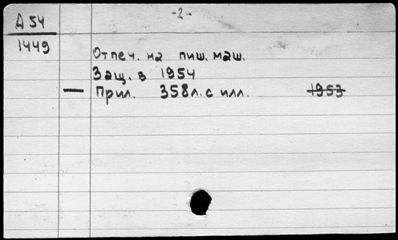 -2-
Д 54
1449
Отпеч. на пиш. маш.
Защ. в 1954
— Прил. 358л. с илл. 1953